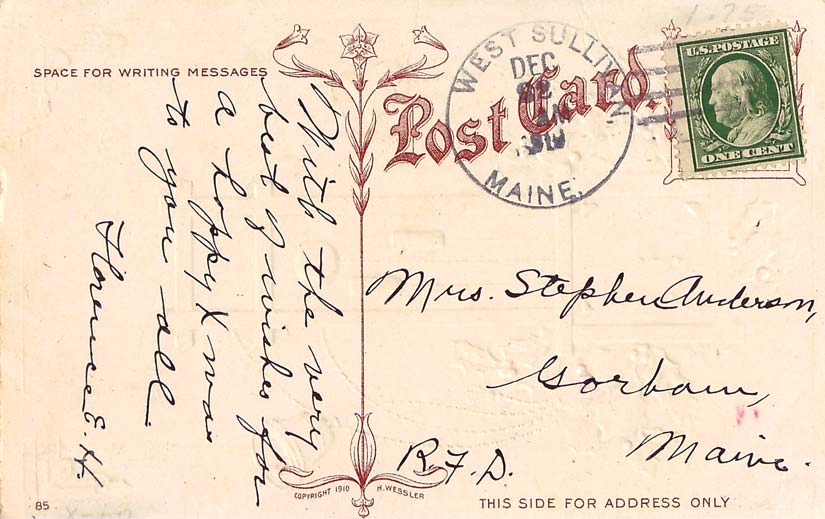 1.25
SPACE FOR WRITING MESSAGES
Post Card.
WEST SULLIVAN,
DEC
MAINE.
U.S. POSTAGE
ONE CENT
With the very
best of wishes for
a happy Xmas
to you all.
Florence E. H.
Mrs. Stephen Anderson,
Gorham,
Maine.
R.F.D.
COPYRIGHT 1910 H. WESSLER
85
THIS SIDE FOR ADDRESS ONLY